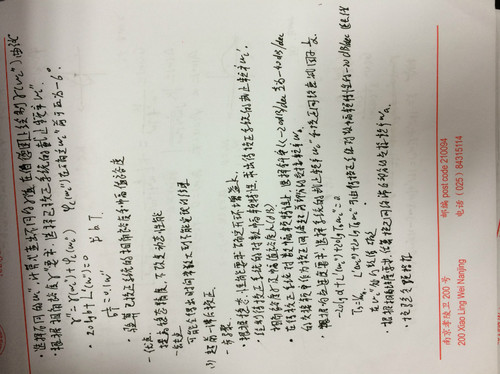 ·选择不同的ωc″,计算或查出不同的γ值,在伯德图上绘制γ(ωc″)曲线
·根据相角裕度γ″要求,选择已校正系统的截止频率ωc″.
γ″=γ(ωc″)+φc(ωc″) φc(ωc″)在确定ωc″前可取为-6°
·20lgb+L′(ωc″)=0
1/bT=0.1ωc″ b,T
·验算已校正系统的相角裕度和幅值裕度
-优点
提高稳态精度,不改变动态性能
-缺点
可能会得出时间常数大到不能实现的结果
超前-滞后校正
-步骤
·根据稳态性能要求确定开环增益K
·绘制待校正系统的对数幅频特性,求出待校正系统的截止频率ωc′,
相角裕度γ及幅值裕度h(dB)
·在待校正系统对数幅频特性上,选择斜率从-20dB/dec变为-40dB/dec
的交接频率作为校正网络超前部分的交接频率ωb
·根据响应速度要求,选择系统的截止频率ωc″和校正网络衰减因子1/α
-20lgα+L′(ωc″)+20lgTbωc″=0
Tb=1/ωb L′(ωc″)+20lgTbωc″可由待校正系统对数幅频特性的-20dB/dec延长线
在ωc″处的数值确定
·根据相角裕度要求,估算校正网络滞后部分的交接频率ωa
·校验各项指标
南京孝陵卫 200 号 邮编 post code 210094
200 Xiao Ling Wei Nanjing 电话 (025) 84315114